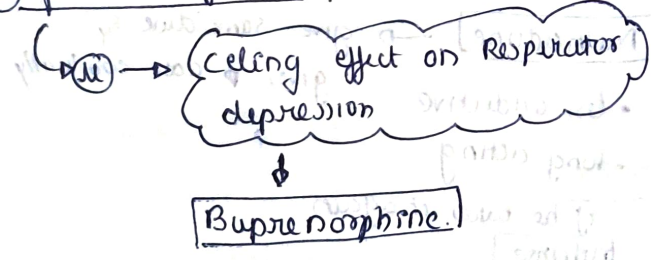 μ → Celing effect on Respirator
depression
Buprenorphine.